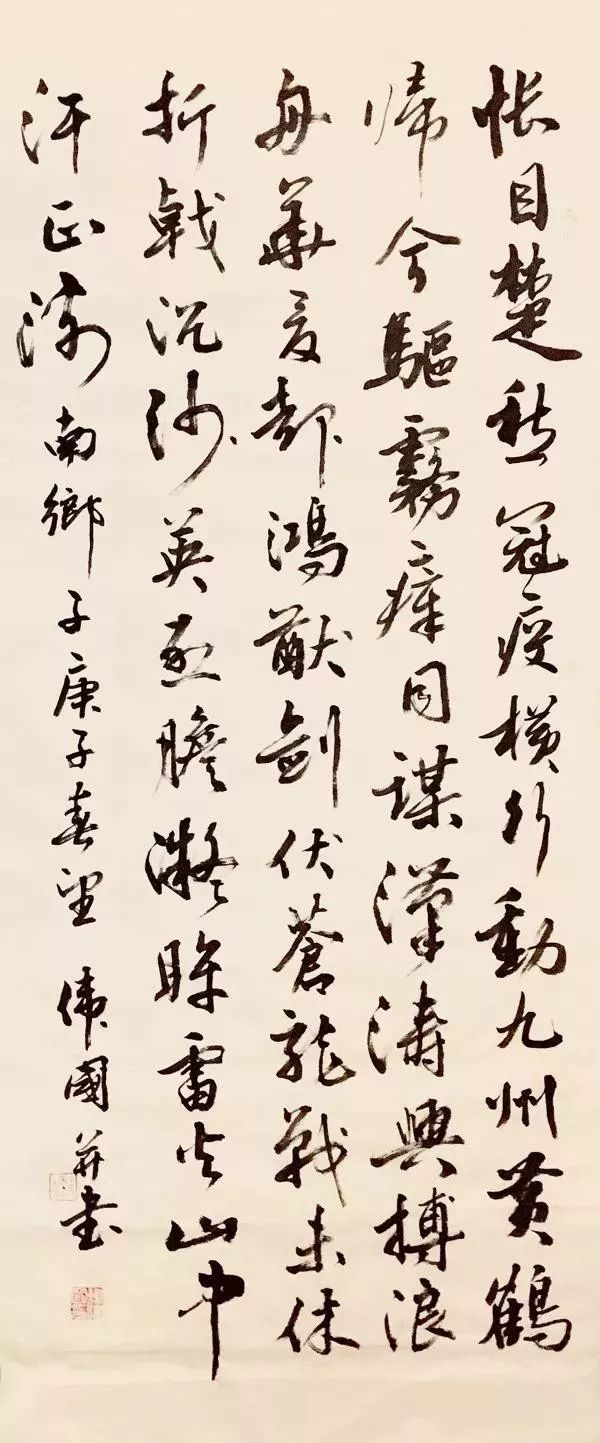 悵目楚愁冠疫橫行動九州黃鶴
歸今驅霧瘴同謀漢濤興搏浪
舟華夏却鴻猷劍伏蒼龍戰未休
折戟沉沙英膽凝眸雷火山中
汗正流 南鄉子庚子春望 偉國并書